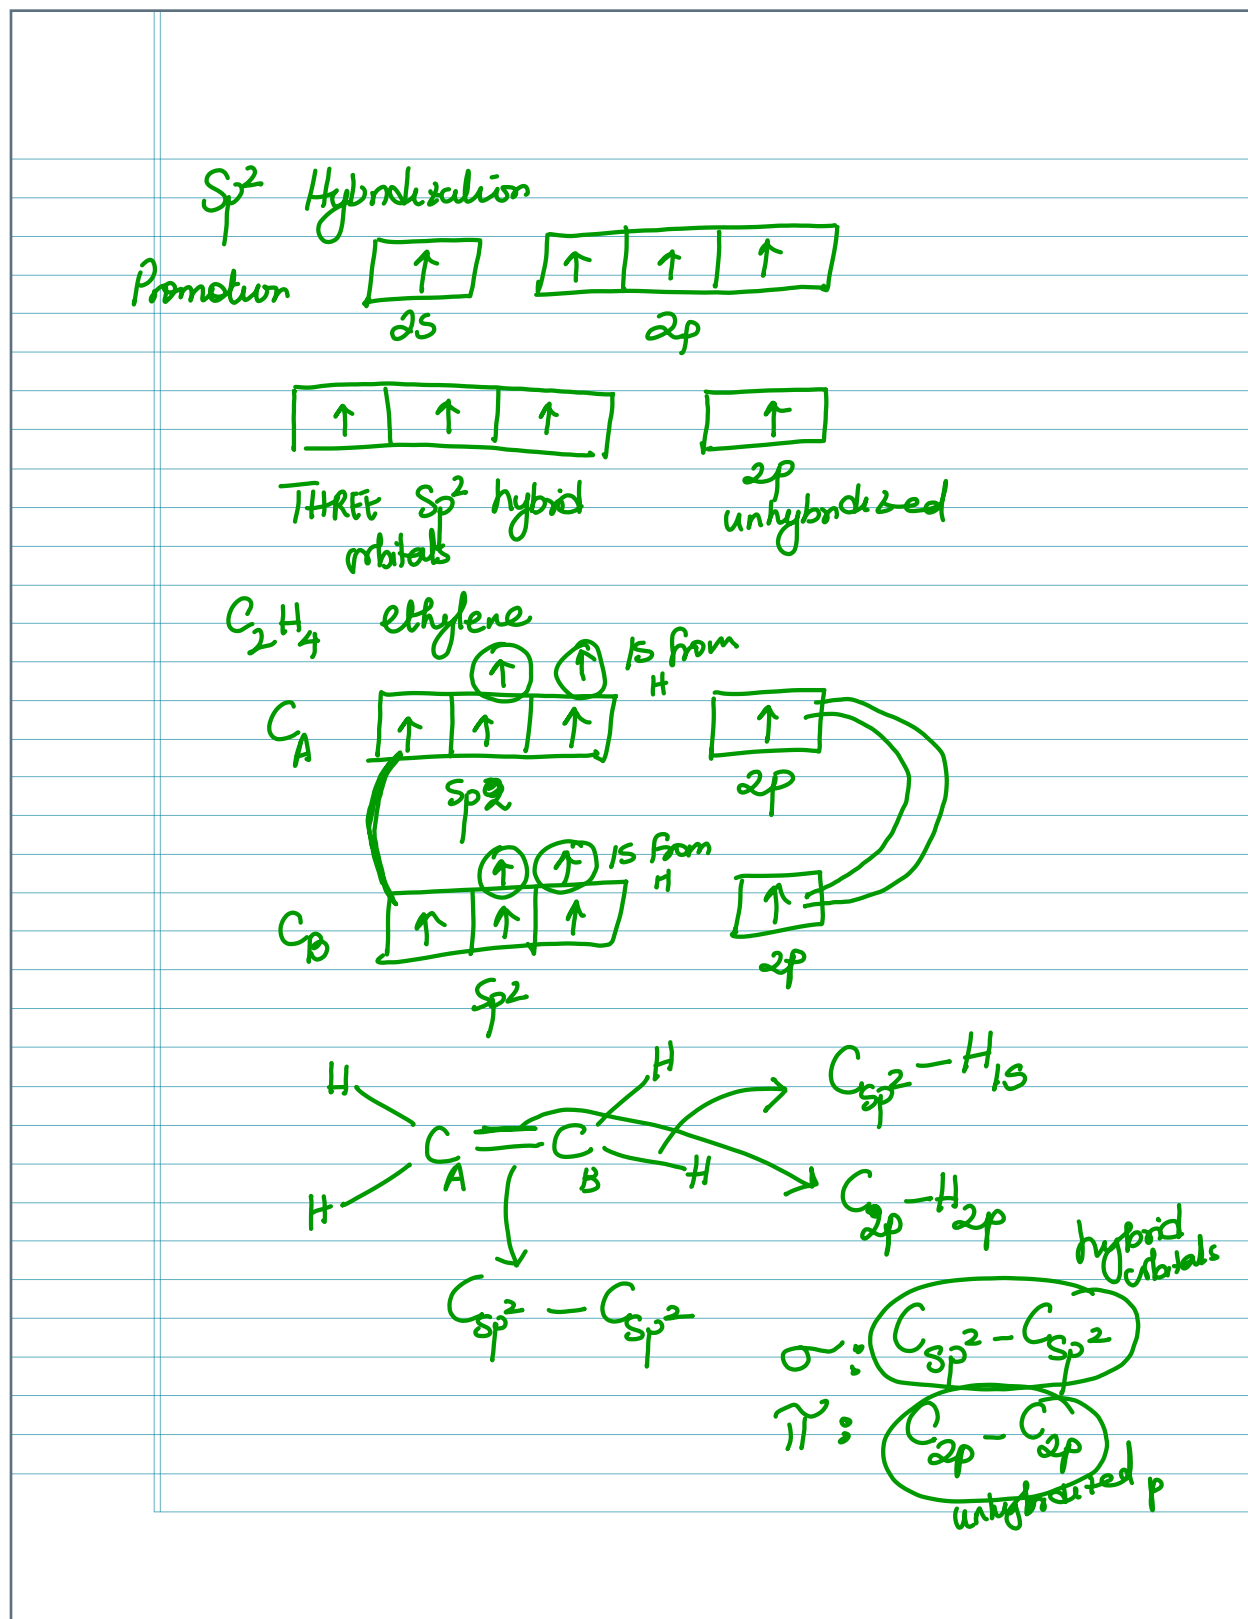 Sp² Hybridization
Promotion
↑ ↑ ↑ ↑
2s 2p
↑ ↑ ↑ ↑
THREE Sp² hybrid orbitals
2p unhybridized
C₂H₄ ethylene
↑ ↑ 1s from H
C_A ↑ ↑ ↑ ↑
sp2 2p
↑ ↑ 1s from H
C_B ↑ ↑ ↑ ↑
sp2 2p
H H C_sp² – H_1s
C_A = C_B
H H C_2p – H_2p
C_sp² – C_sp²
hybrid orbitals
σ: C_sp² – C_sp²
π: C_2p – C_2p
unhybridized p